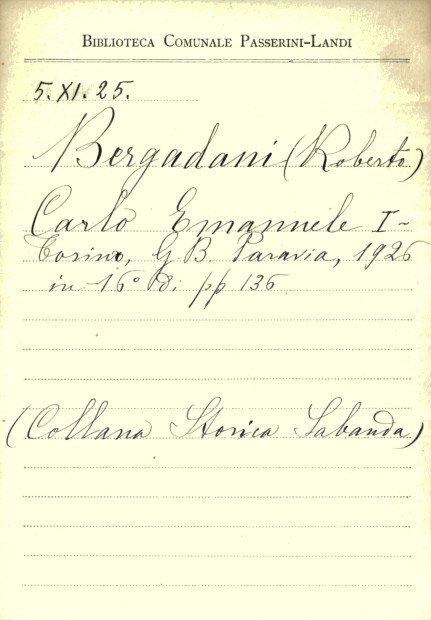 BIBLIOTECA COMUNALE PASSERINI-LANDI
5.XI.25.
Bergadani (Roberto)
Carlo Emanuele I-
Torino, G. B. Paravia, 1926
in-16° di pp 136
(Collana Storica Sabauda)